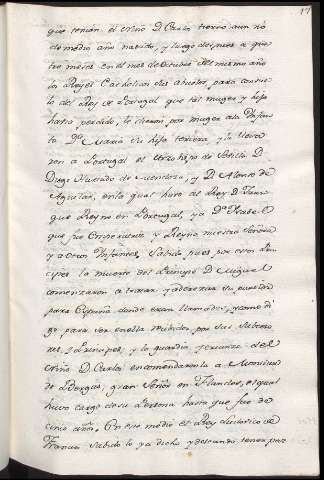 17
que tenían el niño D. Carlos tierno aun no
de medio año nacido, y luego despues a qua-
tro meses en el mes de Octubre del mismo año
los Reyes Catholicos sus abuelos, para consue-
lo del Rey de Portugal que tal muger y hijo
havia perdido, le dieron por muger a la Infan-
ta Dª Maria su hija tercera, y la lleva-
ron a Portugal el Arzobispo de Sevilla D.
Diego Hurtado de Mendoza, y D. Alonso de
Aguilar, en la qual huvo al Rey D. Juan
que Reyno en Portugal, y a Dª Isabel
que fue Emperatriz y Reyna nuestra Señora
y a otros Infantes. Sabida pues por estos Prin-
cipes la muerte del Principe D. Miguel
comenzaron a tratar y aderezar su partida
para España donde eran llamados, y como di-
go para ser en ella recibidos por sus Señores
y Principes, y la guardia y crianza del
niño D. Carlos encomendaron la a Monsiur
de Vergas, gran Señor en Flandes, el qual
tuvo cargo de su Persona hasta que fue de
cinco años. En este medio el Rey Ludovico de
Francia sabido lo ya dicho y deseando tener paz